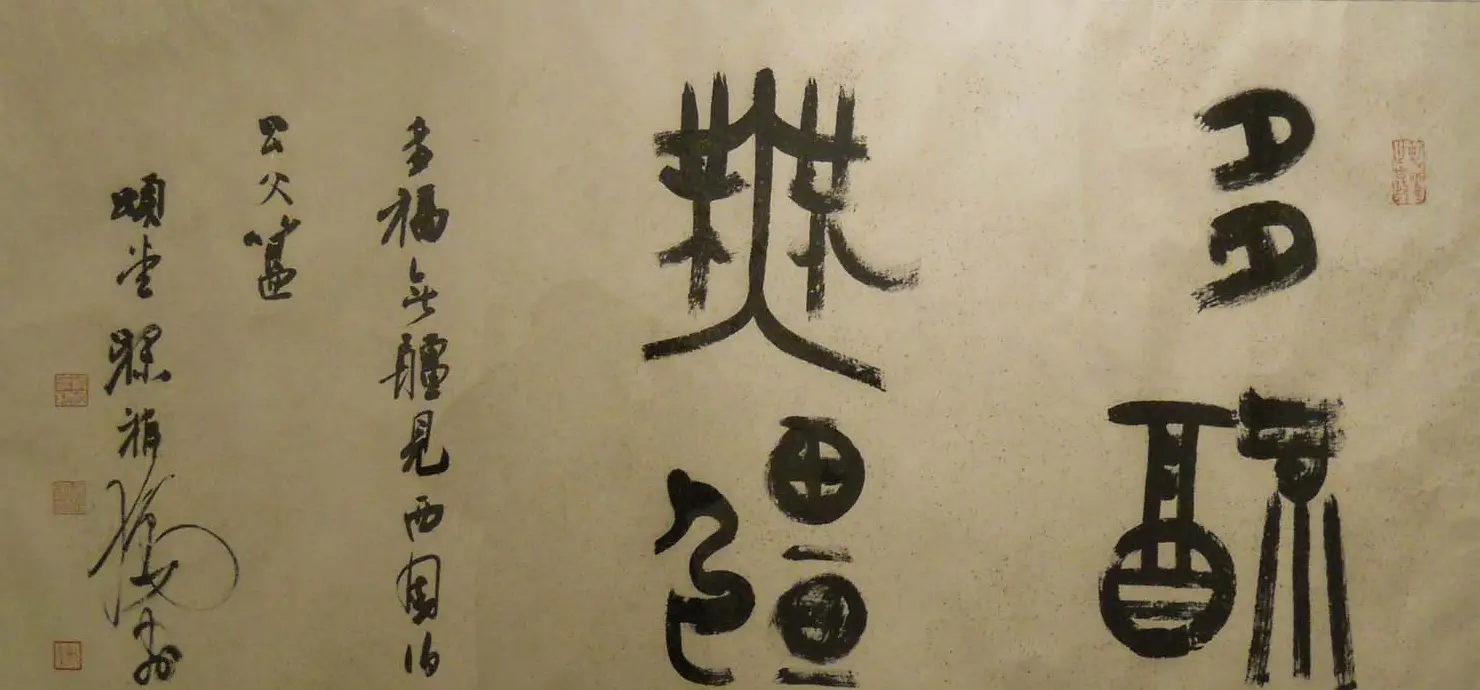 多福
無疆
多福無疆見西周伯
公父簠
頌堂